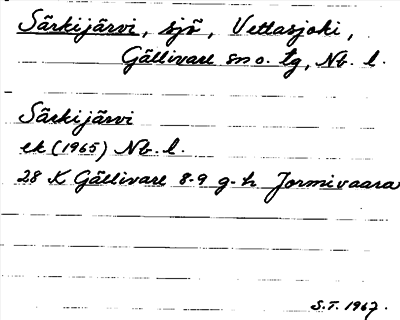 Särkijärvi, sjö, Vettasjoki,
Gällivare sn o. tg, Nb. l.
Särkijärvi
ek (1965) Nb. l.
28 K Gällivare 8-9 g-h Jormivaara
S.T. 1967.